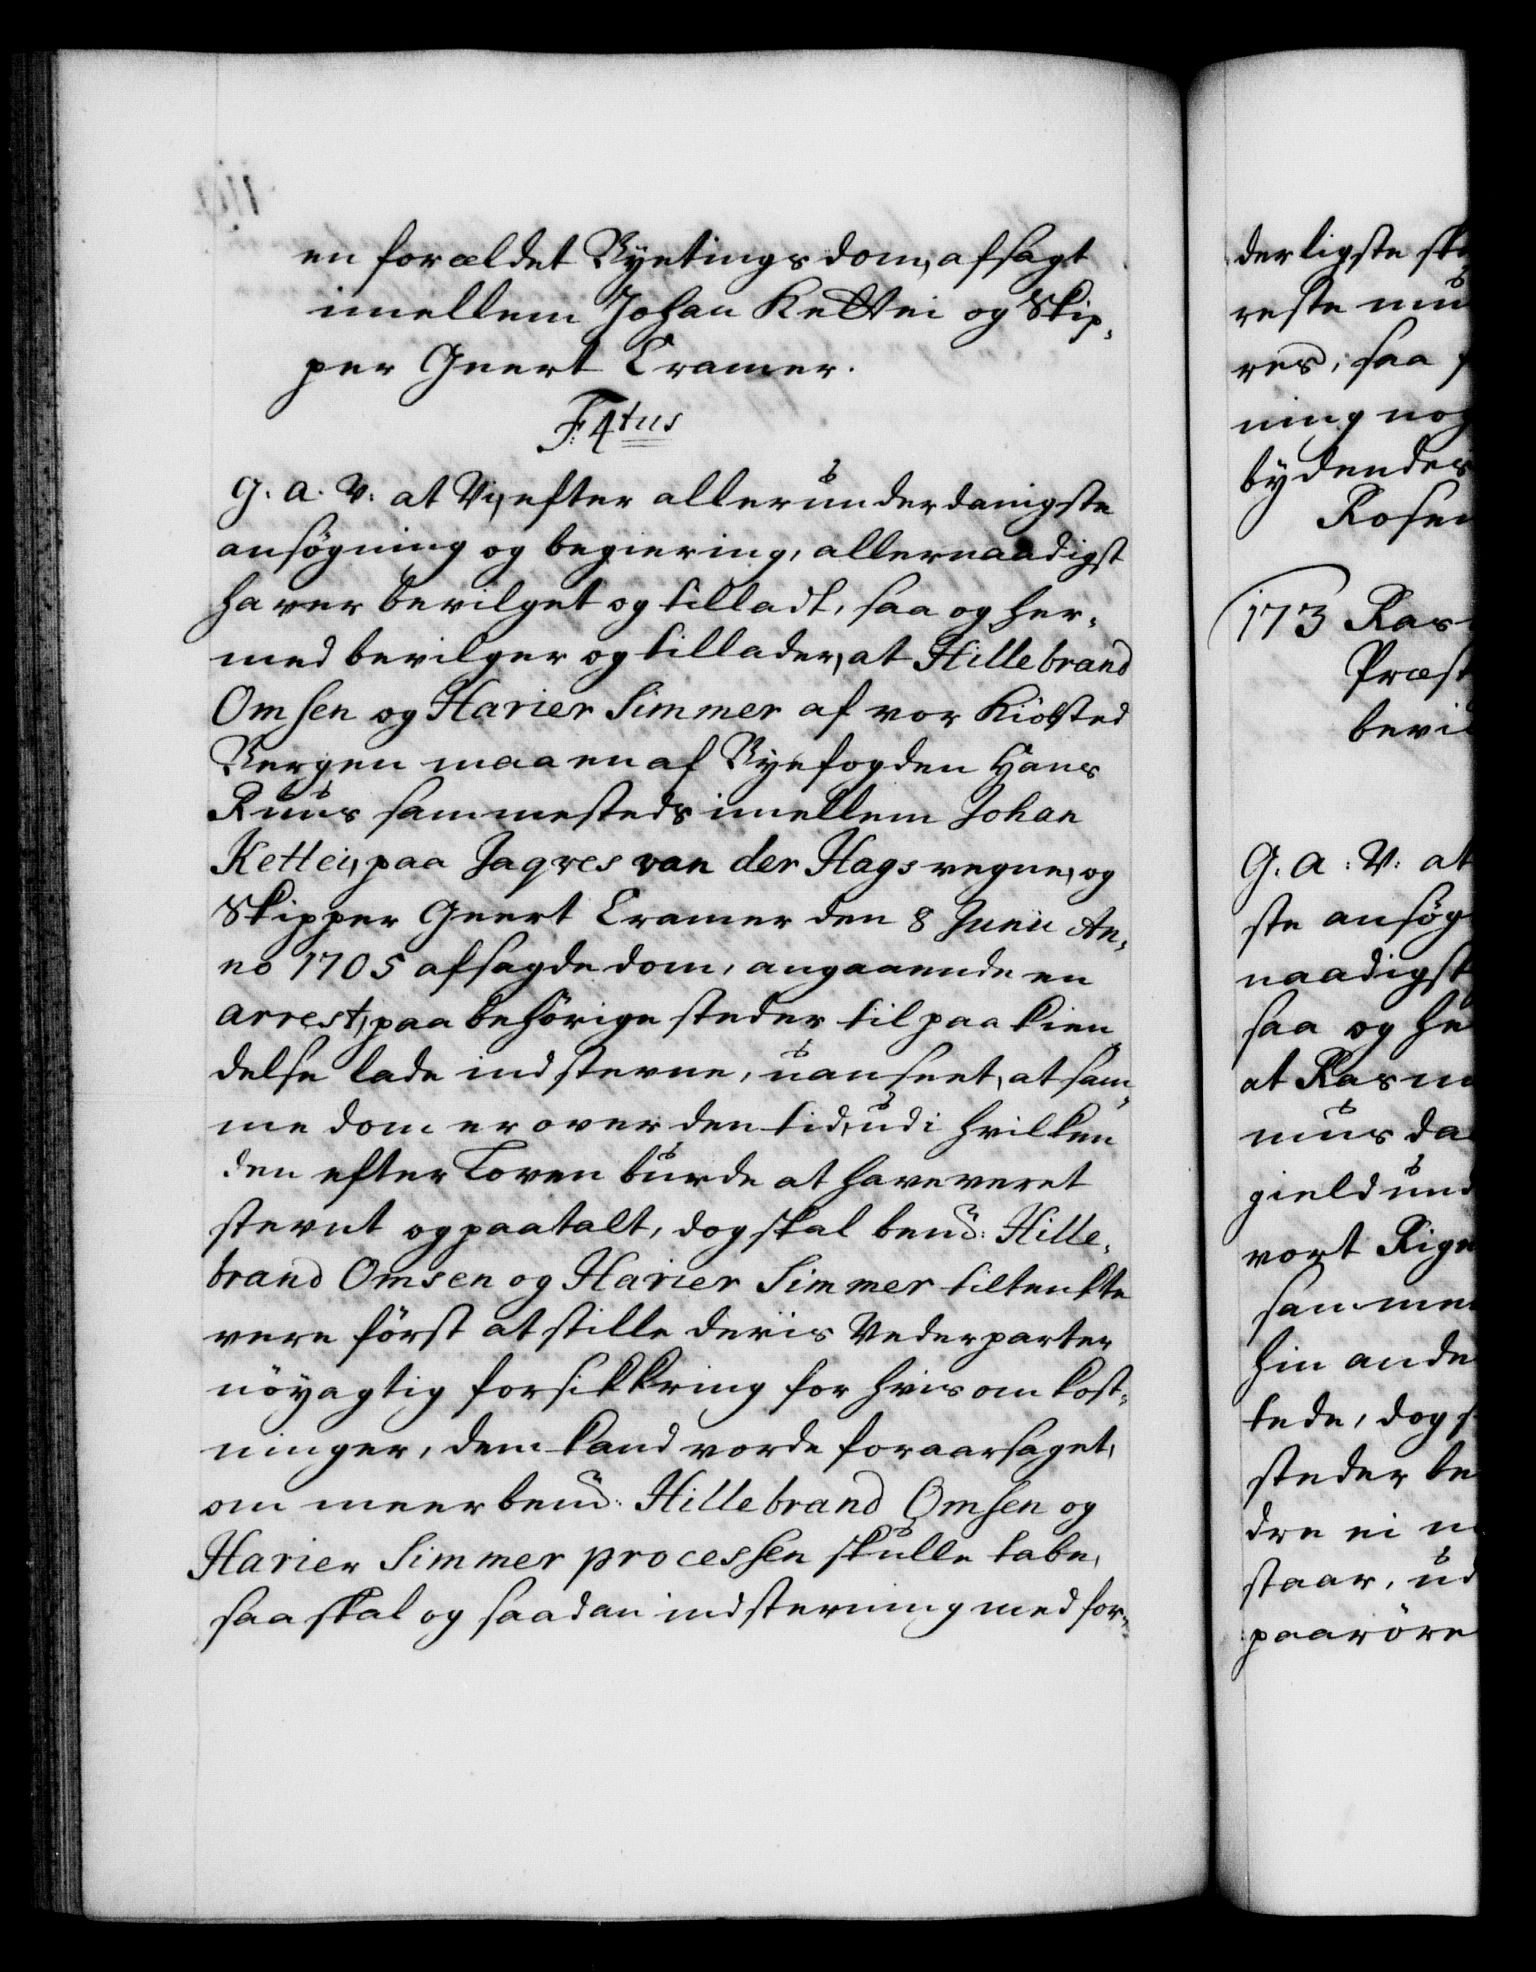 en forældet Byetings dom, afsagt
imellem Johan Kettei og Skip,
per Geert Cramer.
F: 4tus
G. A. V: at Vi, efter allerunderdanigste
ansøgning og begiering, allernaadigst
haver bevilget og tilladt, saa og her,
med bevilger og tillader, at Hillebrand
Omsen og Harier Simmer af vor Kiøbsted
Bergen maa en af Byefogden Hans
Ruus sammesteds imellem Johan
Kettei, paa Jaqves van der Hags vegne, og
Skipper Geert Cramer den 8 Junii An,
no 1705 afsagde dom, angaaende en
arrest, paa behörige steder til paakien,
delse lade indstevne, uanseet, at sam,
me dom er over den tid, udi hvilken
den efter Loven burde at have veret
stevnt og paatalt, dog skal bemd: Hille,
brand Omsen og Harier Simmer tiltenkte
vere först at stille deris Vederparter
nöyagtig forsikkring for hvis omkost,
ninger, dem kand vorde foraarsaget,
om meerbemd: Hillebrand Omsen og
Harier Simmer processen skulle tabe,
saa skal og saadan indstevning med for,
derligste ske
reste mu
res; saa
ning nog
bydendes
Rosen
173 Ras
Præst
bevil
G. A: V: at
ste ansøg
naadigst
saa og he
at Rasm
mus da
gield und
vort Rige
sammen
hinande
tede, dog s
steder be
dre ei
staar, ud
paaröre